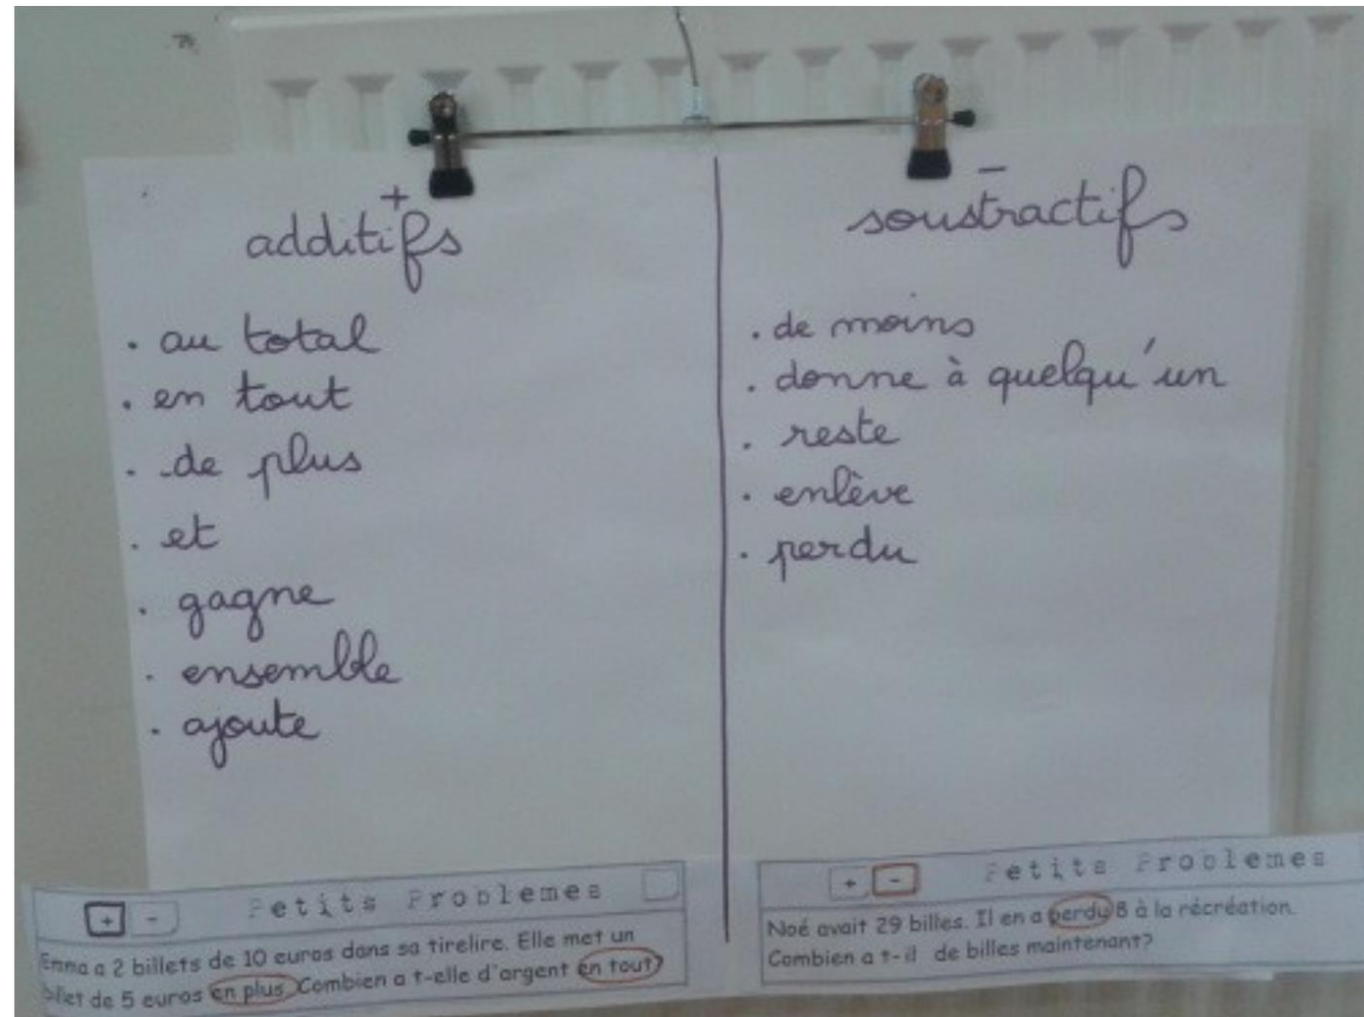 +
additifs
. au total
. en tout
. de plus
. et
. gagne
. ensemble
. ajoute
-
soustractifs
. de moins
. donne à quelqu'un
. reste
. enlève
. perdu
+ - Petits Problemes
Emma a 2 billets de 10 euros dans sa tirelire. Elle met un
billet de 5 euros en plus. Combien a t-elle d'argent en tout?
+ - Petits Problemes
Noé avait 29 billes. Il en a perdu 8 à la récréation.
Combien a t-il de billes maintenant?